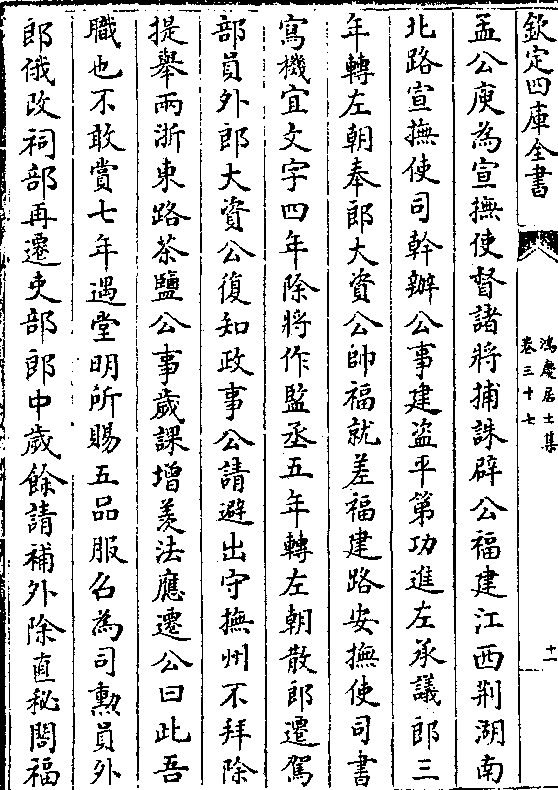 欽定四庫全書
鴻慶居士集
卷三十七
十一
孟公庾為宣撫使督諸將捕誅辟公福建江西荆湖南
北路宣撫使司幹辦公事建盗平第功進左承議郎三
年轉左朝奉郎大資公帥福就差福建路安撫使司書
寫機宜文字四年除將作監丞五年轉左朝散郎遷駕
部員外郎大資公復知政事公請避出守撫州不拜除
提舉兩浙東路茶鹽公事歲課增羨法應遷公曰此吾
職也不敢賞七年遇堂明所賜五品服召為司勲員外
郎俄改祠部再遷吏部郎中歲餘請補外除直秘閣福